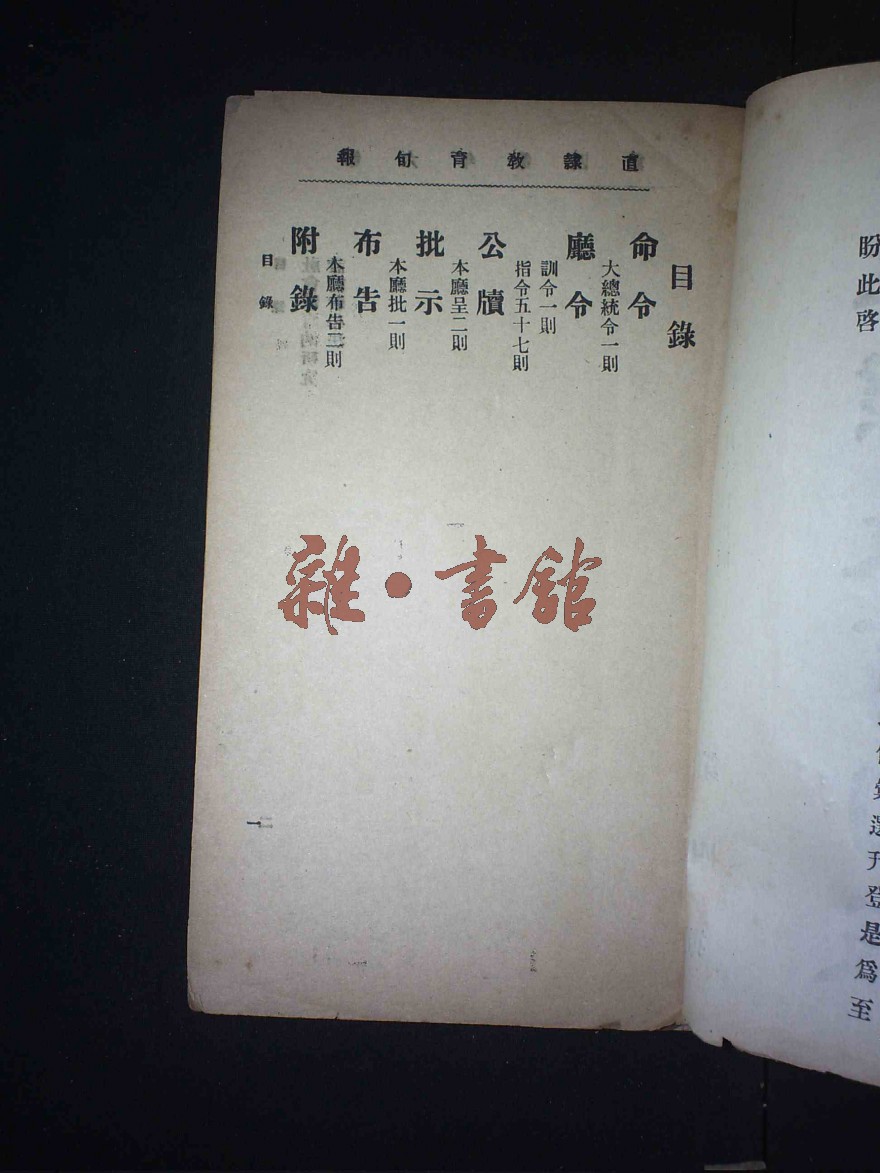 直隸教育旬報
目錄
命令
大總統令一則
廳令
訓令一則
指令五十七則
公牘
本廳呈二則
批示
本廳批一則
布告
本廳布告三則
附錄
目錄
一
雜·書館
盼此啓
選升登是爲至